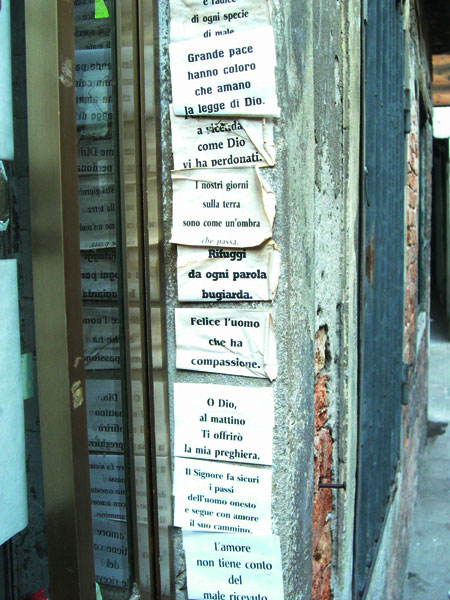 di ogni specie
di male
Grande pace
hanno coloro
che amano
la legge di Dio.
a vicenda
come Dio
vi ha perdonati.
I nostri giorni
sulla terra
sono come un'ombra
che passa.
Rifuggi
da ogni parola
bugiarda.
Felice l'uomo
che ha
compassione.
O Dio,
al mattino
Ti offrirò
la mia preghiera.
Il Signore fa sicuri
i passi
dell'uomo onesto
e segue con amore
il suo cammino.
L'amore
non tiene conto
del
male ricevuto